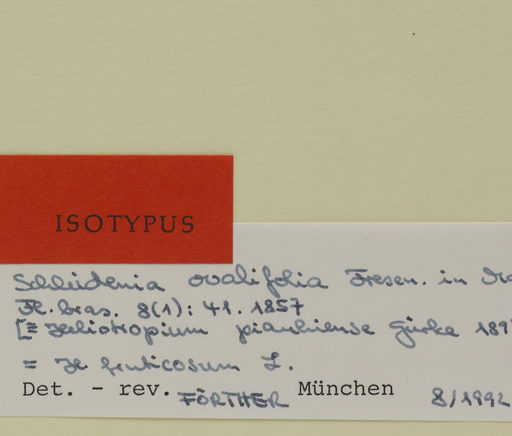 ISOTYPUS
Schleidenia ovalifolia Fresen. in
Fl. bras. 8(1): 41. 1857
[≡ Heliotropium piauhiense Gürke 189
= H fruticosum L.
Det. - rev. FÖRTHER München 8/1992